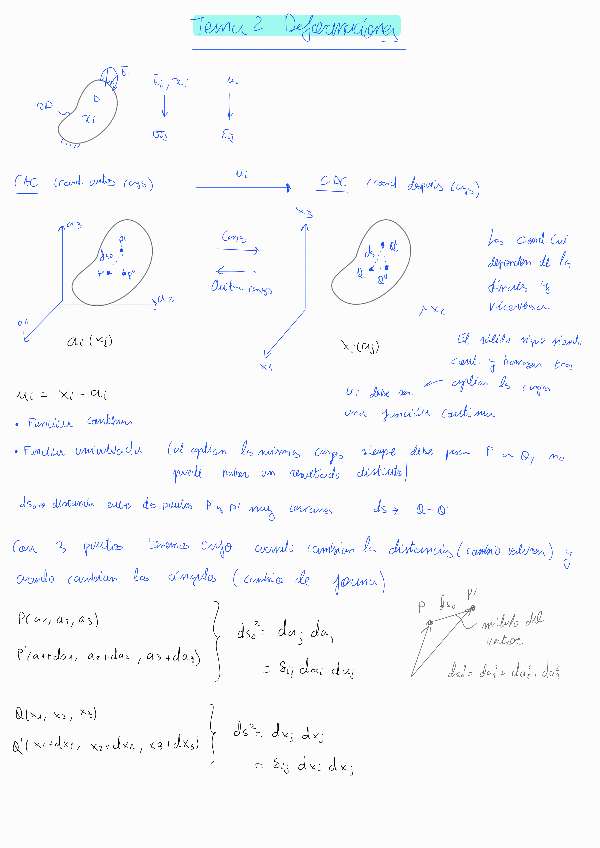 Tema 2 Deformaciones
t̄i
D
xi
ui
σij
εij
CAC (cond. antes carga)
ui
CDC (cond después carga)
a3
x3
ds0
P
P'
P"
Carga
Quitar carga
ds
Q'
Q
Q"
a2
a1
x2
x1
ai (xj)
xi (aj)
Las cond
dependen de la
y
viceversa
El sólido sigue siendo
cont. y tras
aplicar las cargas
ui debe ser
una función continua
ui = xi - ai
• Función continua
• Función univaluada (al aplicar las mismas cargas siempre debe pasar P → Q, no
puede haber un resultado distinto)
ds0 → distancia entre dos puntos P y P' muy cercanos ds → Q - Q'
Con 3 puntos tenemos cuando cambian las distancias (cambio volumen) y
cuando cambian los ángulos (cambio de forma)
P(a1, a2, a3)
P'(a1+da1, a2+da2, a3+da3)
ds0² = daj daj
= δij dai daj
P ds0 P'
módulo del
vector
ds0² = da1² + da2² + da3²
Q(x1, x2, x3)
Q'(x1+dx1, x2+dx2, x3+dx3)
ds² = dxj dxj
= δij dxi dxj